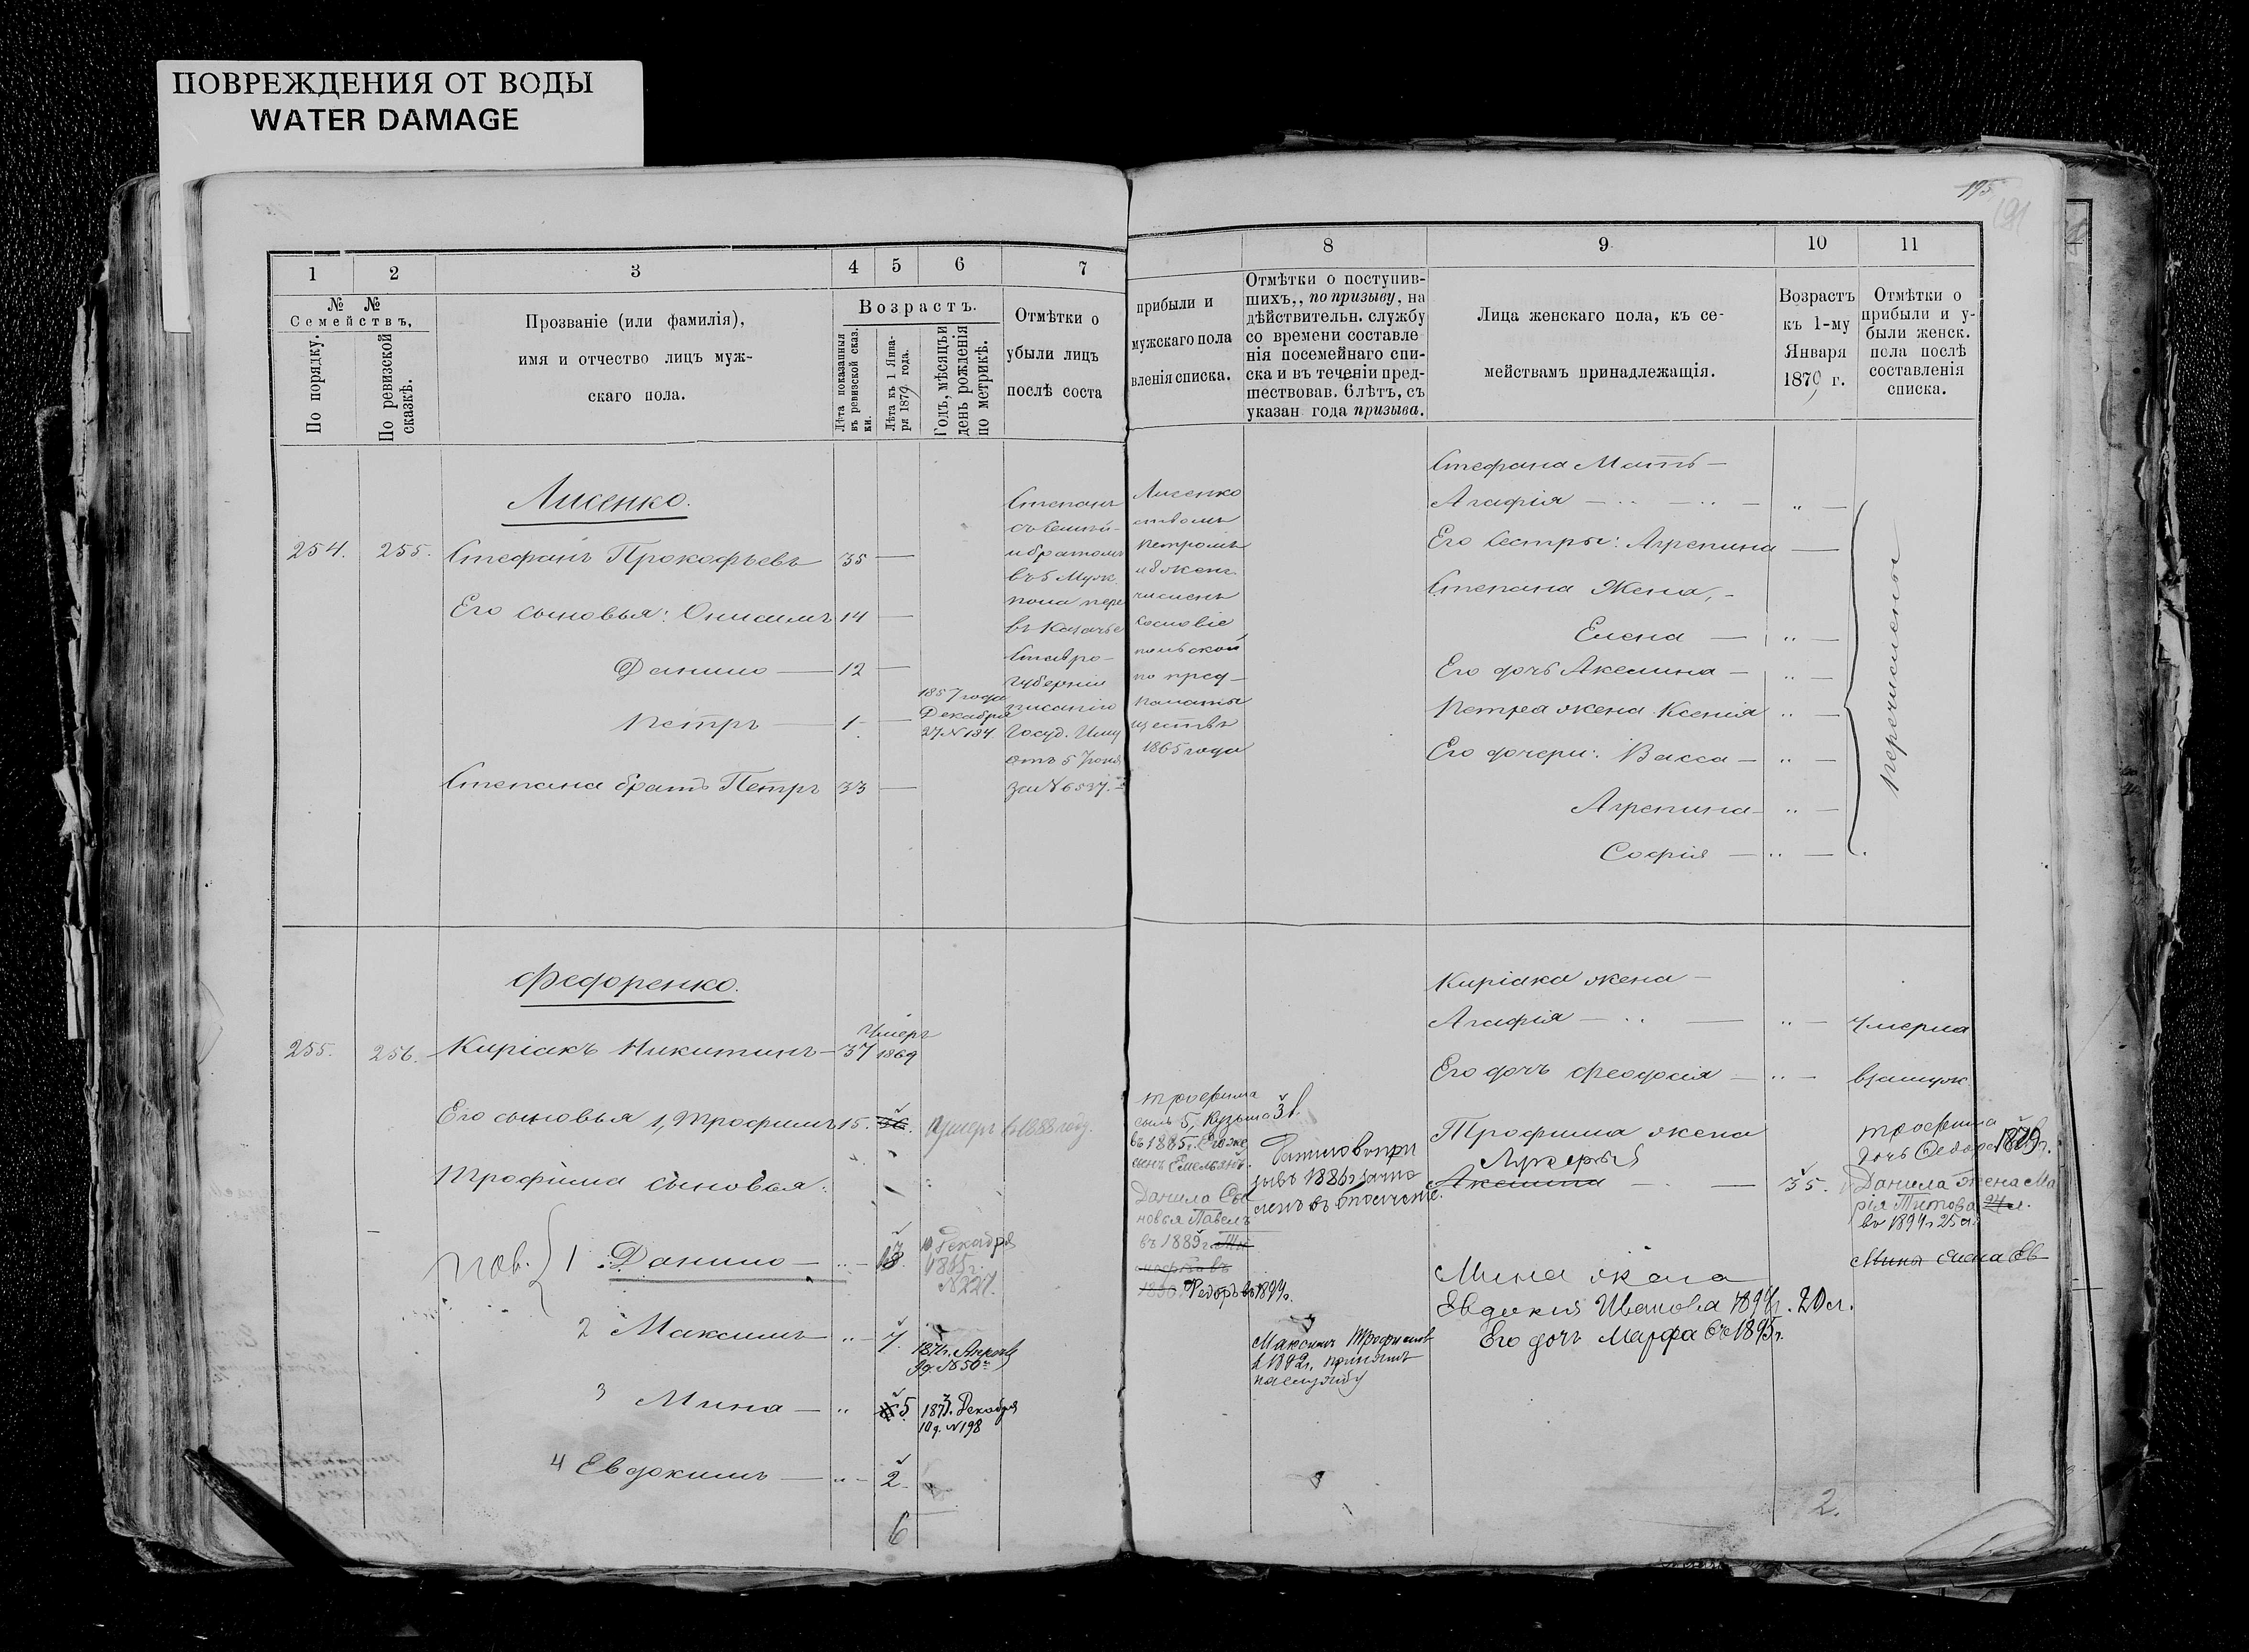 ПОВРЕЖДЕНИЯ ОТ ВОДЫ
WATER DAMAGE
195
191
1
2
3
4
5
6
7
8
9
10
11
№ №
Семействъ,
По порядку.
По ревизской сказкѣ.
Прозваніе (или фамилія),
имя и отчество лицъ муж-
скаго пола.
Возрастъ.
Лѣта показанныя въ ревизской сказ. ки.
Лѣта къ 1 Янва- ря 1879 года.
Годъ, мѣсяцъ и день рожденія по метрикѣ.
Отмѣтки о
убыли лицъ
послѣ соста
прибыли и
мужскаго пола
вленія списка.
Отмѣтки о поступив-
шихъ,, по призыву, на
дѣйствительн. службу
со времени составле
нія посемейнаго спи-
ска и въ теченіи пред-
шествовав. 6 лѣтъ, съ
указан года призыва.
Лица женскаго пола, къ се-
мействамъ принадлежащія.
Возрастъ
къ 1-му
Января
1879 г.
Отмѣтки о
прибыли и у-
были женск.
пола послѣ
составленія
списка.
Лисенко.
254. 255. Стефанъ Прокофьевъ 35 —
Его сыновья: Онисимъ 14 —
Данило — 12 —
Петръ — 1 —
1857 года
Декабря
27 N 134
Степана братъ Петръ 33 —
Степанъ Лисенко
съ Семей- ствомъ
и братомъ Петромъ
въ 5 Муж. и 8 женс.
пола пере численъ
въ Казачье Сословіе
Ставро- польской
Губерніи по пред-
писанію Палаты
Госуд. Иму ществъ
отъ 5 Іюня 1865 года
за N 6537.
Стефана Мать —
Агафія — „ —
Его Сестры: Агрепина —
Степана Жена, -
Елена — „ —
Его дочь Акелина — „ —
Петра жена Ксенія „ —
Его дочери: Васса — „ —
Агрепина — „ —
Софія — „ —
Перечислены
Федоренко.
255. 256. Киріакъ Никитинъ — 37
Умеръ
1869
Его сыновья 1, Трофимъ 15. 36. Умеръ в 1883 году.
Трофима сыновья:
нов. 1 Данило — „ — 18.
10 Декабря
N 227.
2 Максимъ — „ — 7.
N 50
3 Мина — „ 5
1873. Декабря
10 д. N 198
4 Евдокимъ — „ — 2.
6
Трофима
сынъ 5, Кузьма 3 л.
въ 1885 г. Его же
сынъ Емельянъ.
Данила Сы
новья Павелъ
въ 1889 г.
Федоръ въ 1894 г.
Данило в при
зывъ 1886 г. зачис
ленъ въ ополченіе.
Максимъ Трофимов
в 1892 г. принятъ
на службу
Киріака жена —
Агафія — „ — „ — умерла
Его дочь Феодосія — „ — взамуж
Трофима жена
Лукерья
Акелина — — 35.
Мина жена
Евдокия Иванова 1894 г. 20 л.
Его дочь Марфа съ 1895 г.
Трофима
дочь Федора 1879 г.
Данила жена Ма
рія Титова
въ 1894 г. 25 л.
Мины жена Ев
2.